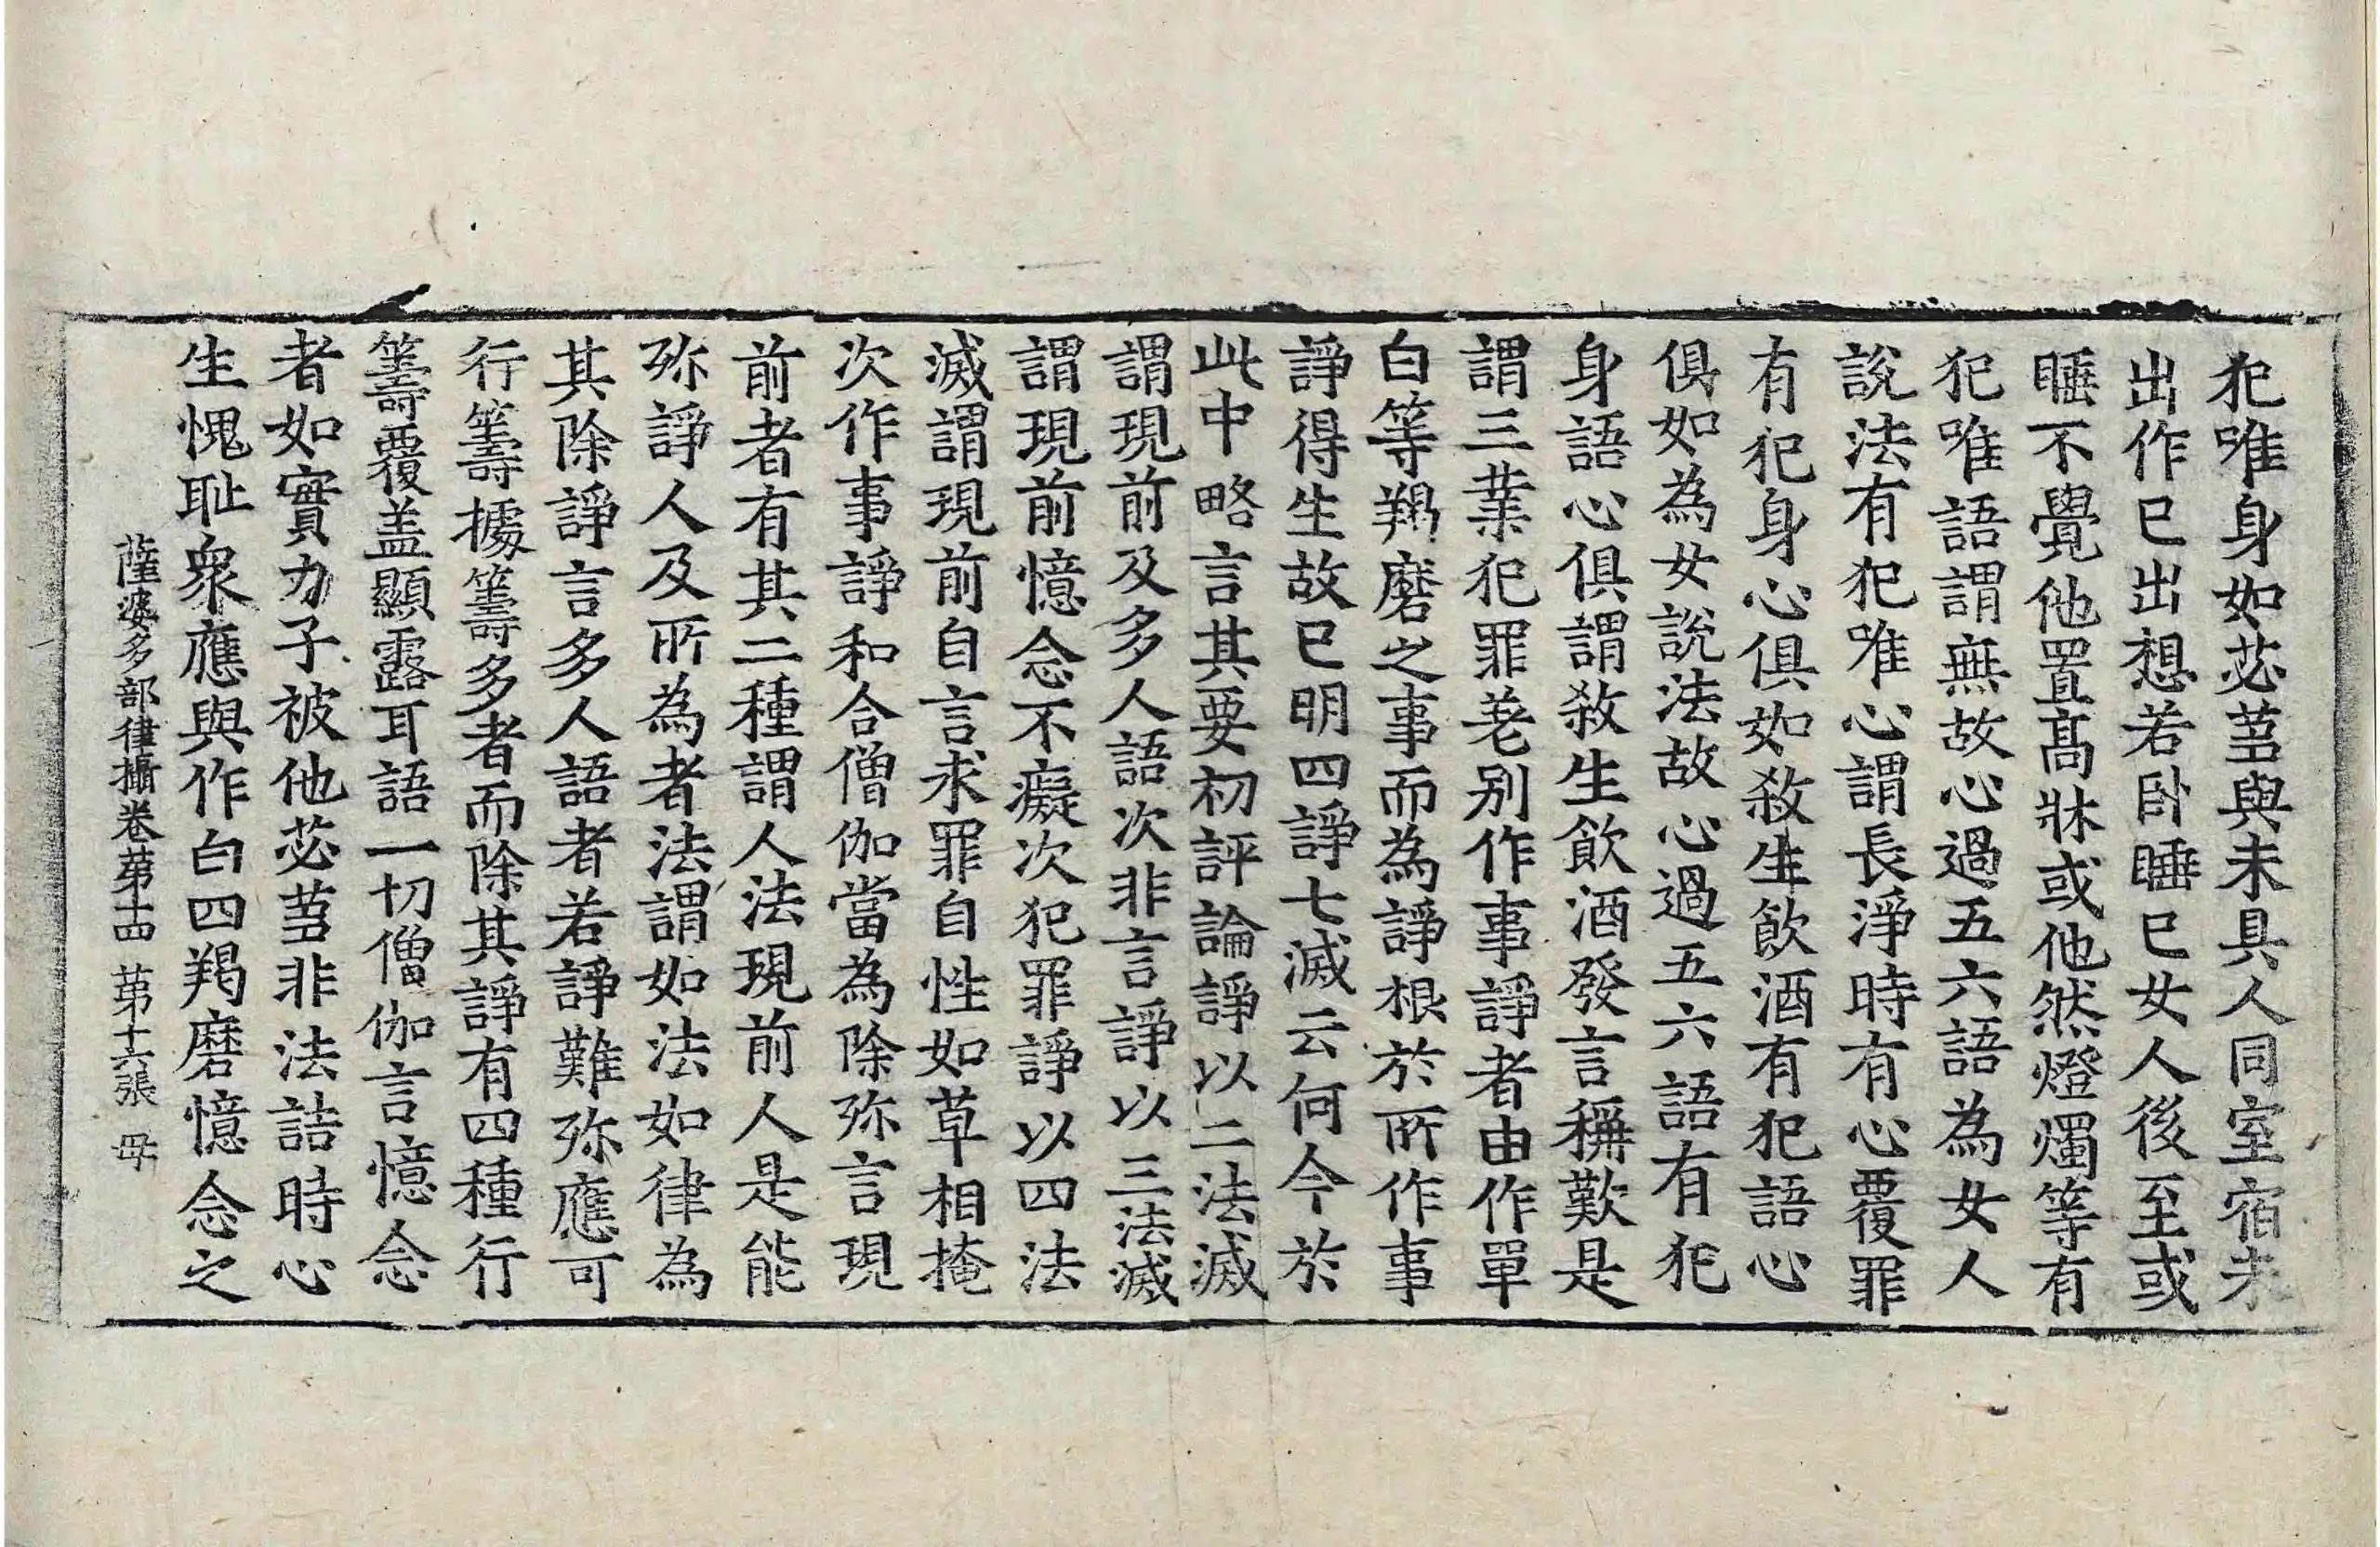 犯唯身如苾蒭與未具人同室宿未
出作已出想若卧睡已女人後至或
睡不覺他置髙牀或他然燈燭等有
犯唯語謂無故心過五六語為女人
說法有犯唯心謂長淨時有心覆罪
有犯身心俱如敘生飲酒有犯語心
俱如為女說法故心過五六語有犯
身語心俱謂敘生飲酒發言稱歎是
謂三業犯罪差别作事諍者由作單
白等羯磨之事而為諍根於所作事
諍得生故已明四諍七滅云何今於
此中略言其要初評論諍以二法滅
謂現前及多人語次非言諍以三法滅
謂現前憶念不癡次犯罪諍以四法
滅謂現前自言求罪自性如草相掩
次作事諍和合僧伽當為除弥言現
前者有其二種謂人法現前人是能
弥諍人及所為者法謂如法如律為
其除諍言多人語者若諍難弥應可
行籌據籌多者而除其諍有四種行
籌覆盖顯露耳語一切僧伽言憶念
者如實力子被他苾蒭非法詰時心
生愧耻衆應與作白四羯磨憶念之
薩婆多部律攝卷苐十四 苐十六張 母